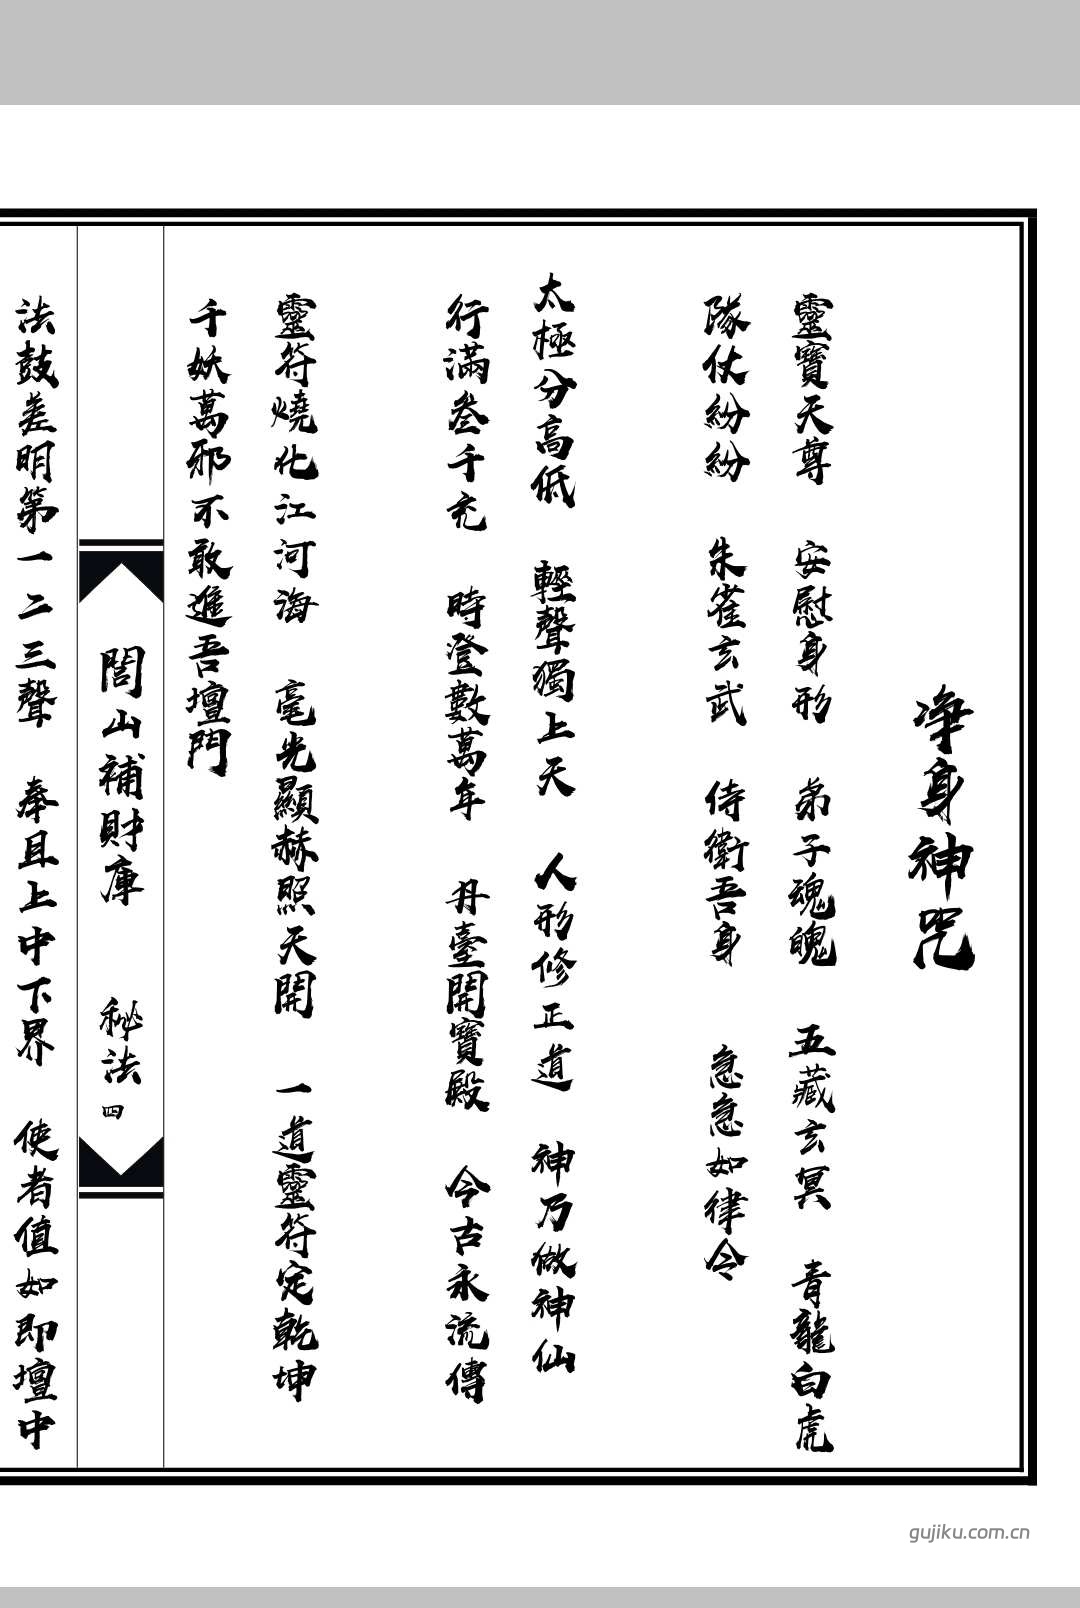 净身神咒
靈寶天尊 安慰身形 弟子魂魄 五藏玄冥 青龍白虎
隊仗紛紛 朱雀玄武 侍衛吾身 急急如律令
太極分高低 輕聲獨上天 人形修正道 神乃做神仙
行滿叁千充 時登數萬年 丹臺開寶殿 今古永流傳
靈符燒化江河海 毫光顯赫照天開 一道靈符定乾坤
千妖萬邪不敢進吾壇門
閭山補財庫 秘法 四
法鼓差明第一二三聲 奉且上中下界 使者值如即壇中
gujiku.com.cn